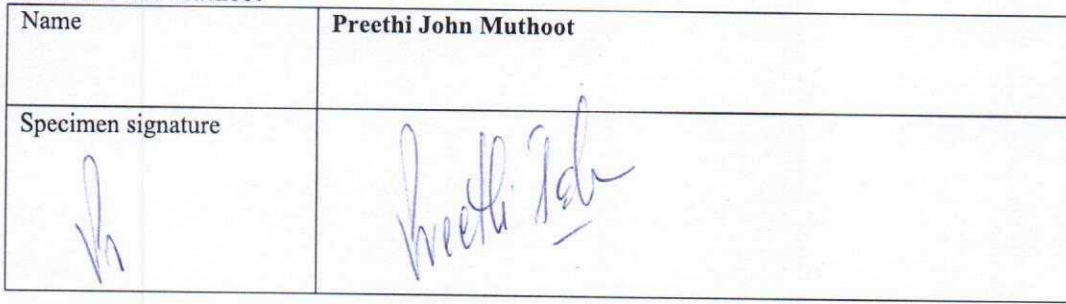 Name
Preethi John Muthoot
Specimen signature
Preethi Joh